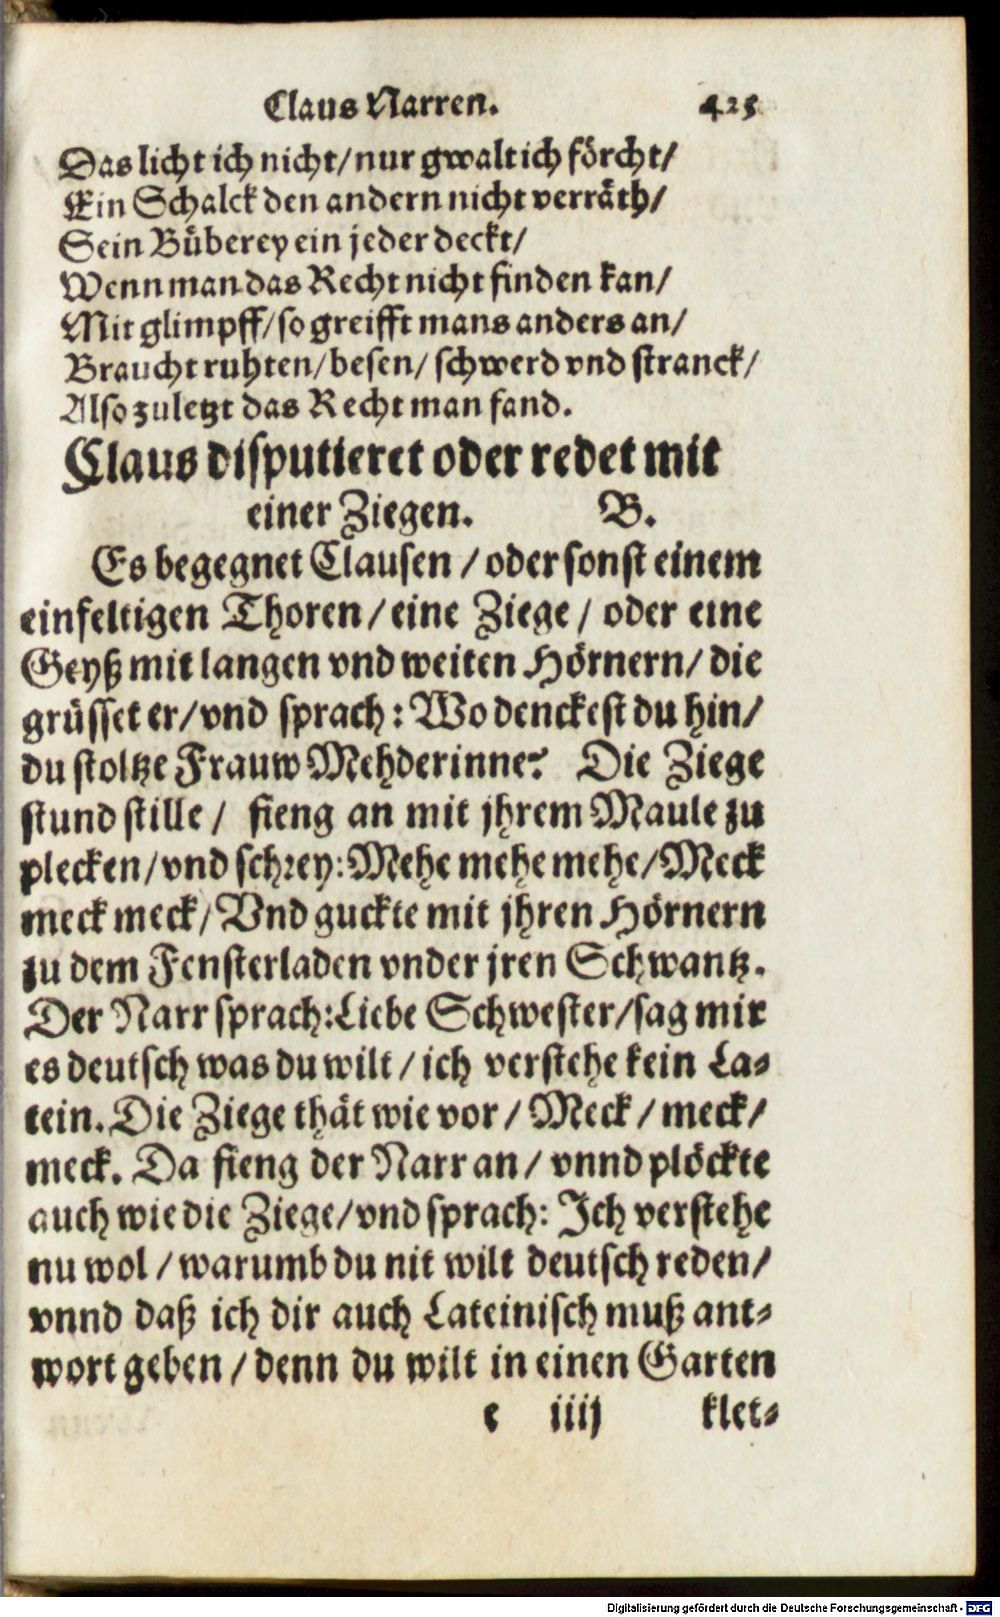 Claus Narren. 425
Das licht ich nicht/nur gwalt ich förcht/
Ein Schalck den andern nicht verräth/
Sein Büberey ein jeder deckt/
Wenn man das Recht nicht finden kan/
Mit glimpff/so greifft mans anders an/
Braucht ruhten/besen/schwerd vnd stranck/
Also zuletzt das Recht man fand.
Claus disputieret oder redet mit
einer Ziegen. B.
Es begegnet Clausen/oder sonst einem
einfeltigen Thoren/eine Ziege/oder eine
Geyß mit langen vnd weiten Hörnern/die
grüsset er/vnd sprach: Wo denckest du hin/
du stoltze Frauw Mehderinne? Die Ziege
stund stille/ fieng an mit jhrem Maule zu
plecken/vnd schrey: Mehe mehe mehe/Meck
meck meck/Vnd guckte mit jhren Hörnern
zu dem Fensterladen vnder jren Schwantz.
Der Narr sprach: Liebe Schwester/sag mir
es deutsch was du wilt/ich verstehe kein La-
tein. Die Ziege thät wie vor/Meck/meck/
meck. Da fieng der Narr an/vnnd plöckte
auch wie die Ziege/vnd sprach: Ich verstehe
nu wol/warumb du nit wilt deutsch reden/
vnnd daß ich dir auch Lateinisch muß ant-
wort geben/denn du wilt in einen Garten
e iiij klet-
Digitalisierung gefördert durch die Deutsche Forschungsgemeinschaft - DFG